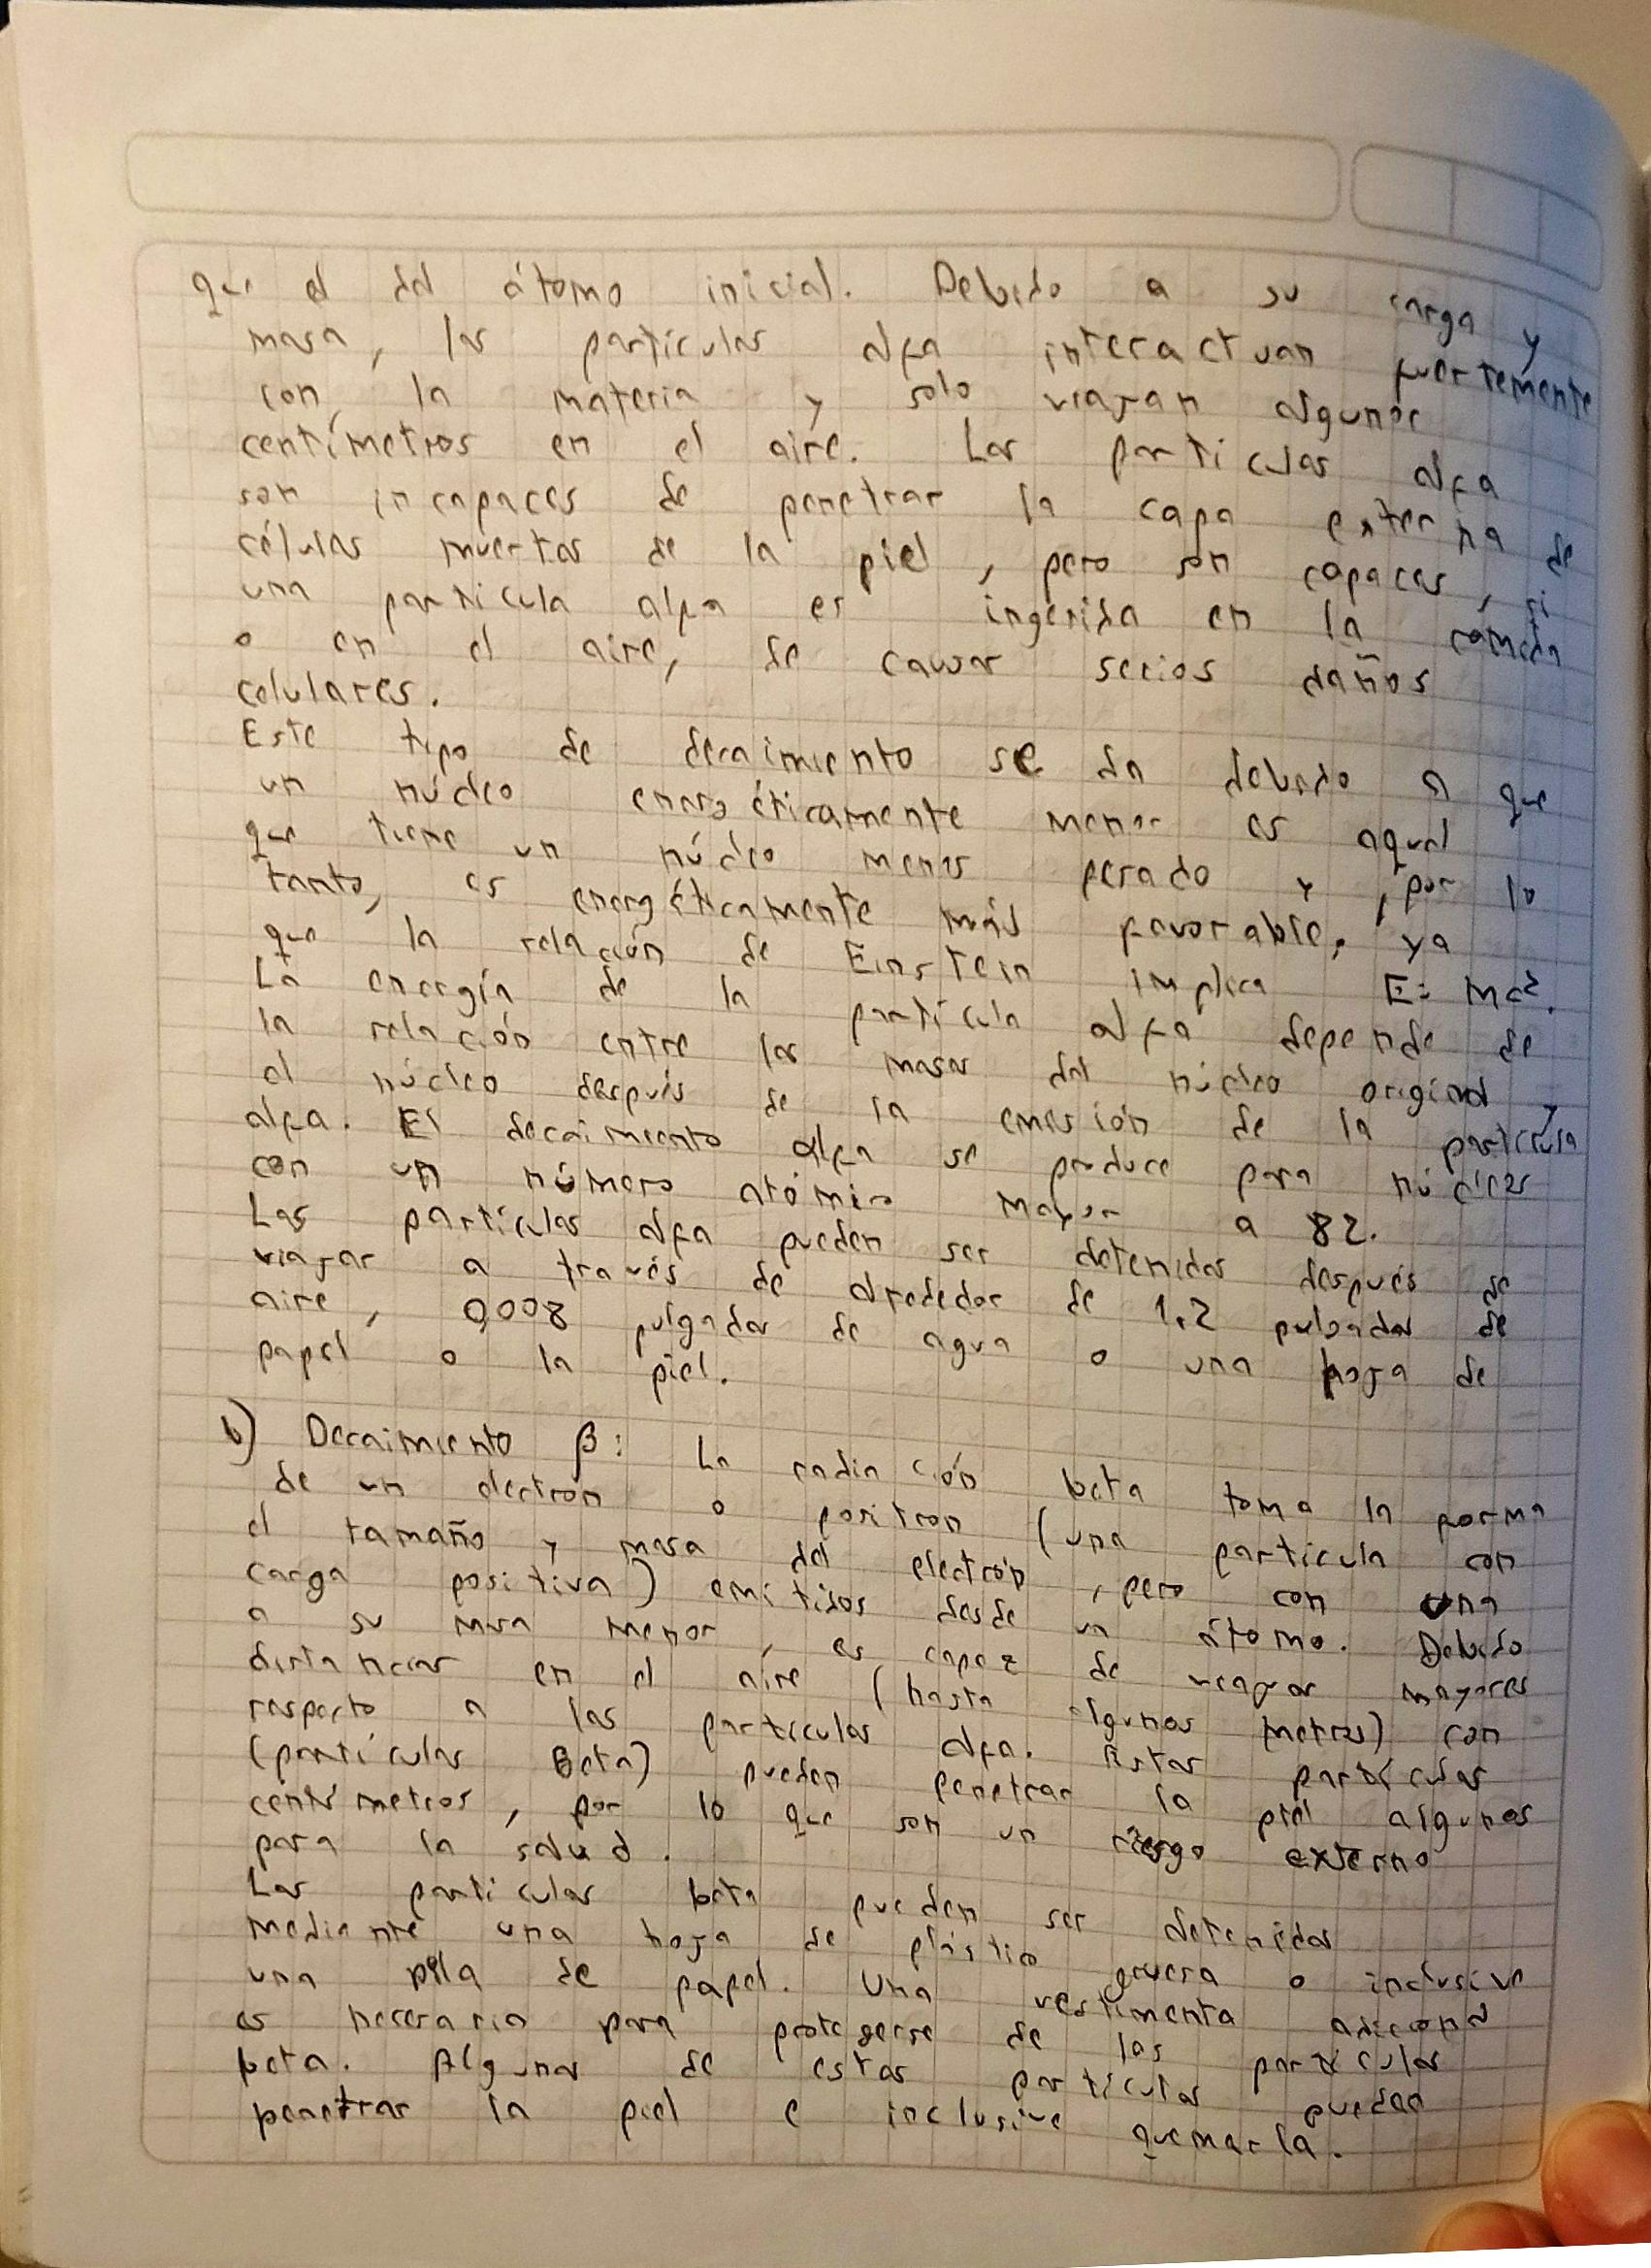 que el del átomo inicial. Debido a su carga y
masa, las partículas alfa interactuan fuertemente
con la materia y solo viajan algunos
centímetros en el aire. Las partículas alfa
son incapaces de penetrar la capa externa de
células muertas de la piel, pero son capaces, si
una partícula alfa es ingerida en la comida
o en el aire, de causar serios daños
celulares.
Este tipo de decaimiento se da debido a que
un núcleo energéticamente menor es aquel
que tiene un núcleo menos pesado y, por lo
tanto, es energéticamente más favorable, ya
que la relación de Einstein implica E= mc².
La energía de la partícula alfa depende de
la relación entre las masas del núcleo original y
el núcleo después de la emisión de la partícula
alfa. El decaimiento alfa se produce para núcleos
con un número atómico mayor a 82.
Las partículas alfa pueden ser detenidas después de
viajar a través de alrededor de 1.2 pulgadas de
aire, 0,008 pulgadas de agua o una hoja de
papel o la piel.
b) Decaimiento β: La radiación beta toma la forma
de un electrón o positron (una partícula con
el tamaño y masa del electrón, pero con una
carga positiva) emitidos desde un átomo. Debido
a su masa menor, es capaz de viajar mayores
distancias en el aire (hasta algunos metros) con
respecto a las partículas alfa. Estas partículas
(partículas Beta) pueden penetrar la piel algunos
centímetros, por lo que son un riesgo externo
para la salud.
Las partículas beta pueden ser detenidas
mediante una hoja de plástico gruesa o inclusive
una pila de papel. Una vestimenta adicional
es necesaria para protegerse de las partículas
beta. Algunas de estas partículas pueden
penetrar la piel e inclusive quemarla.